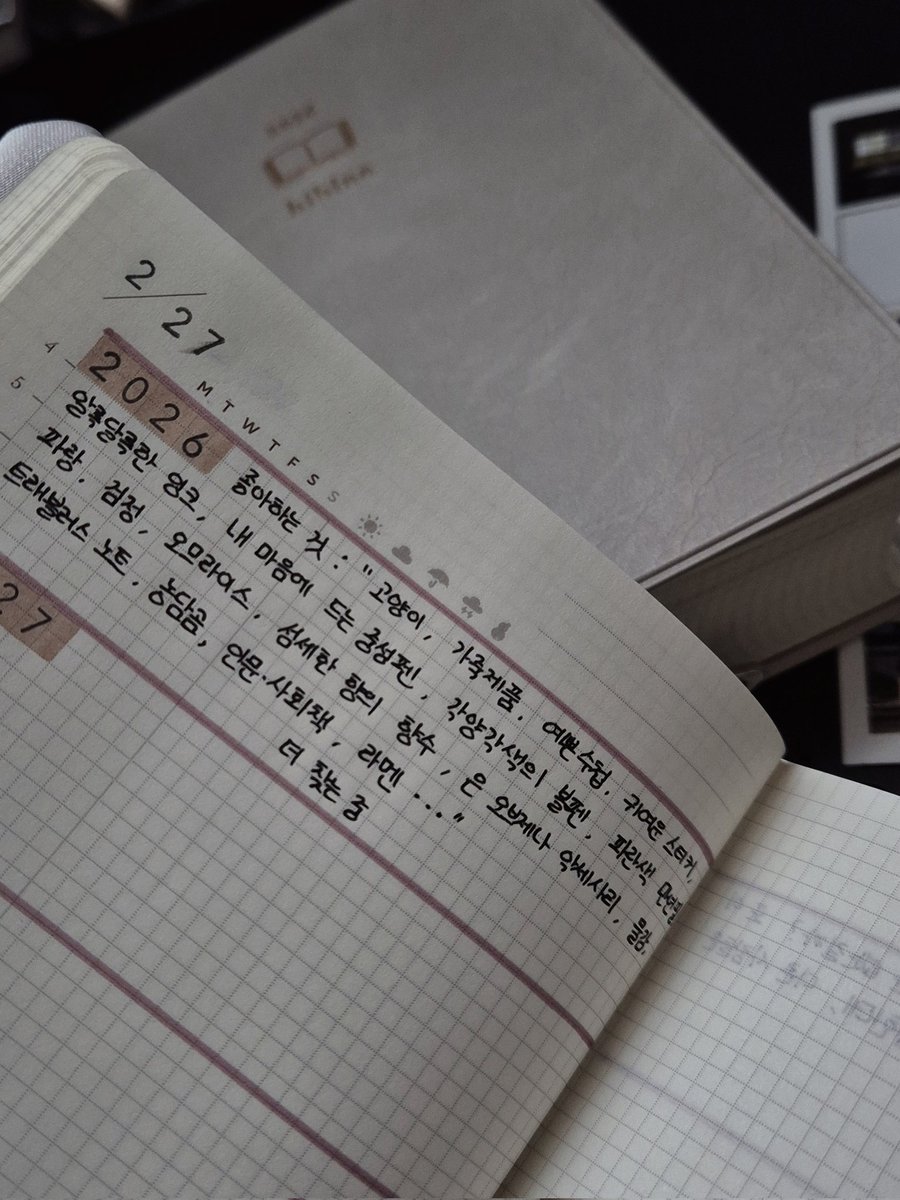 2/27
4
5
M T W T F S S
2026
좋아하는 것 : "고양이, 가죽제품, 예쁜 수첩, 귀여운 스티커,
알록달록한 잉크, 내 마음에 드는 중성펜, 각양각색의 볼펜, 파란색 만년필,
파랑, 검정, 오므라이스, 섬세한 향의 향수, 은 오브제나 악세사리, 물감,
트래블러스 노트, 농담곰, 인문·사회책, 라멘 ..."
더 찾는 중
27